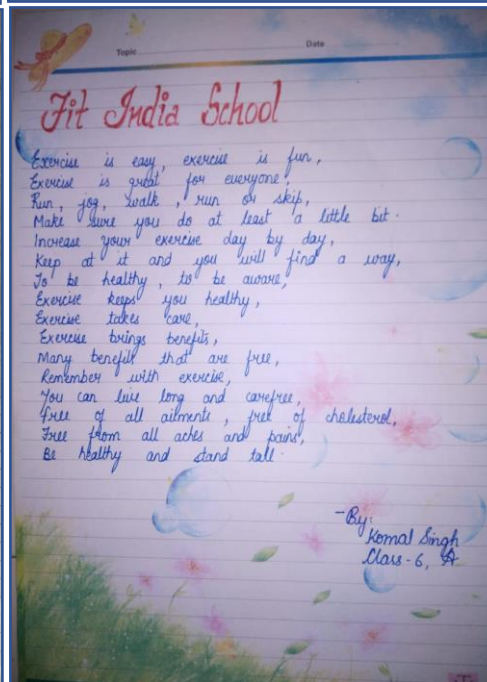 Topic Date
Fit India School
Exercise is easy, exercise is fun,
Exercise is great for everyone;
Run, jog, walk, run or skip,
Make sure you do at least a little bit.
Increase your exercise day by day,
Keep at it and you will find a way,
To be healthy, to be aware,
Exercise keeps you healthy,
Exercise takes care,
Exercise brings benefits,
Many benefits that are free,
Remember with exercise,
You can live long and carefree,
Free of all ailments, free of cholesterol,
Free from all aches and pains,
Be healthy and stand tall.
- By:
Komal Singh
Class - 6, A